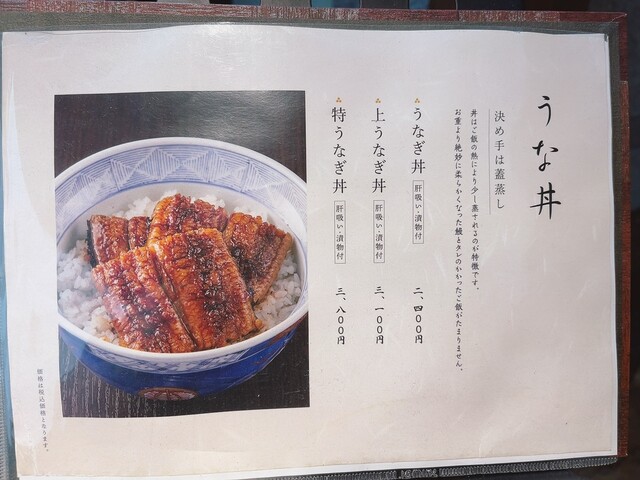 うな丼
決め手は蓋蒸し
丼はご飯の熱により少し蒸されるのが特徴です。
お重より絶妙に柔らかくなった鰻とタレのかかったご飯がたまりません。
うなぎ丼 肝吸い・漬物付 二、四〇〇円
上うなぎ丼 肝吸い・漬物付 三、一〇〇円
特うなぎ丼 肝吸い・漬物付 三、八〇〇円
価格は税込価格となります。